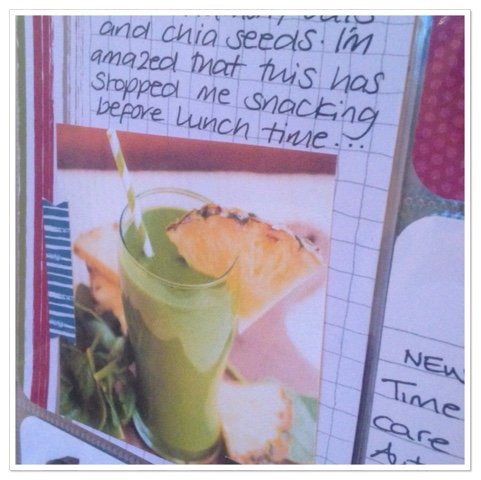 and chia seeds. I'm
amazed that this has
stopped me snacking
before lunch time...
NEW
Time
care